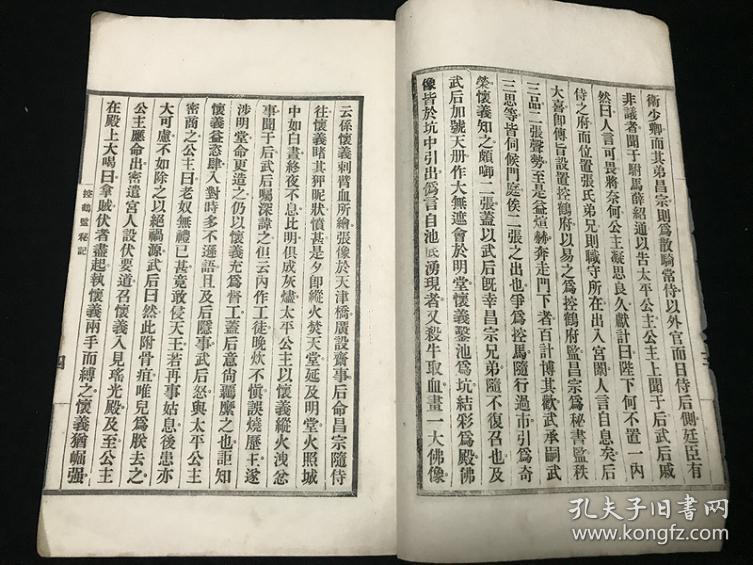 衛少卿而其弟昌宗則爲散騎常侍以外官而日侍后側廷臣有
非議者聞于駙馬薛紹通以告太平公主公主上聞于后武后戚
然曰人言可畏將奈何公主凝思良久獻計曰陛下何不置一內
侍之府而位置張氏弟兄則職守所在出入宮闈人言自息矣后
大喜師傅旨設置控鶴府以易之爲控鶴府監昌宗爲秘書監秩
三品二張聲勢至是益煊赫奔走門下者百計博其歡武承嗣武
三思等皆伺候門庭俟二張之出也爭爲控馬隨行過市引爲奇
榮懷義知之頗啣二張蓋以武后旣幸昌宗兄弟隨不復召也及
武后加號天册作大無遮會於明堂懷義鑿池爲坑結彩爲殿佛
像皆於坑中引出爲言自池底湧現者又殺牛取血畫一大佛像
云係懷義刺膂血所繪張像於天津橋廣設齋事后命昌宗隨侍
往懷義睹其狎昵狀憤甚是夕卽縱火焚天堂延及明堂火照城
中如白晝終夜不息比明俱成灰燼太平公主以懷義縱火洩忿
事聞于后武后矚深諱之但云內作工徒晚炊不愼誤燒歷王遂
涉明堂命更造之仍以懷義充爲督工蓋后意尙羈縻之也詎知
懷義益恣肆入對時多不遜語且及后隱事武后怒與太平公主
密商之公主曰老奴無禮已甚竟敢侵天王若再事姑息後患亦
大可慮不如除之以絕禍源武后曰然此附骨疽唯兒爲朕去之
公主應命出密遣宮人設伏要道召懷義入見瑤光殿及至公主
在殿上大喝曰拿賊伏者盡起執懷義兩手而縛之懷義猶崛强
控鶴監秘記
四
孔夫子旧书网
www.kongfz.com